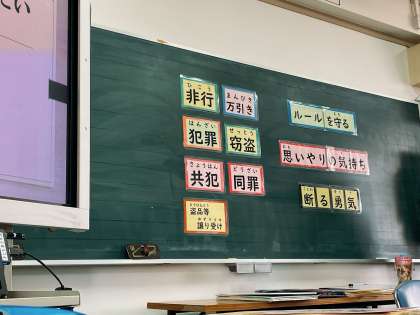 たい
ひこう
非行
まんびき
万引き
はんざい
犯罪
せっとう
窃盗
きょうはん
共犯
どうざい
同罪
とうひんとう
盗品等
ゆずりうけ
譲り受け
ルールを守る
思いやりの気持ち
断る勇気